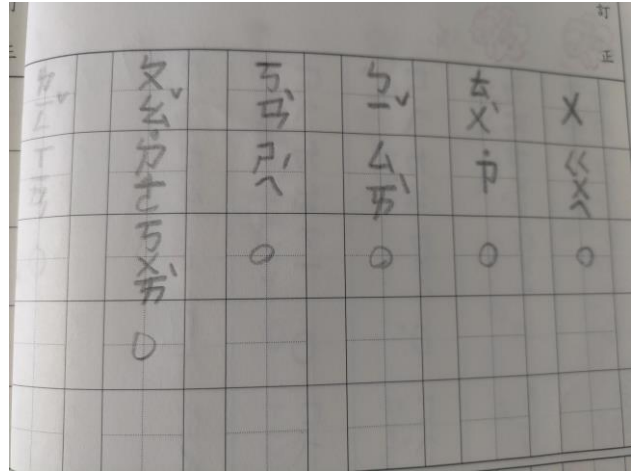 訂正
ㄨ ㄍㄨㄟ 。
ㄊㄨˋ ˙ㄗ 。
ㄅㄧˇ ㄙㄞˋ 。
ㄎㄢˋ ㄕㄟˊ 。
ㄆㄠˇ ˙ㄉㄜ ㄎㄨㄞˋ 。